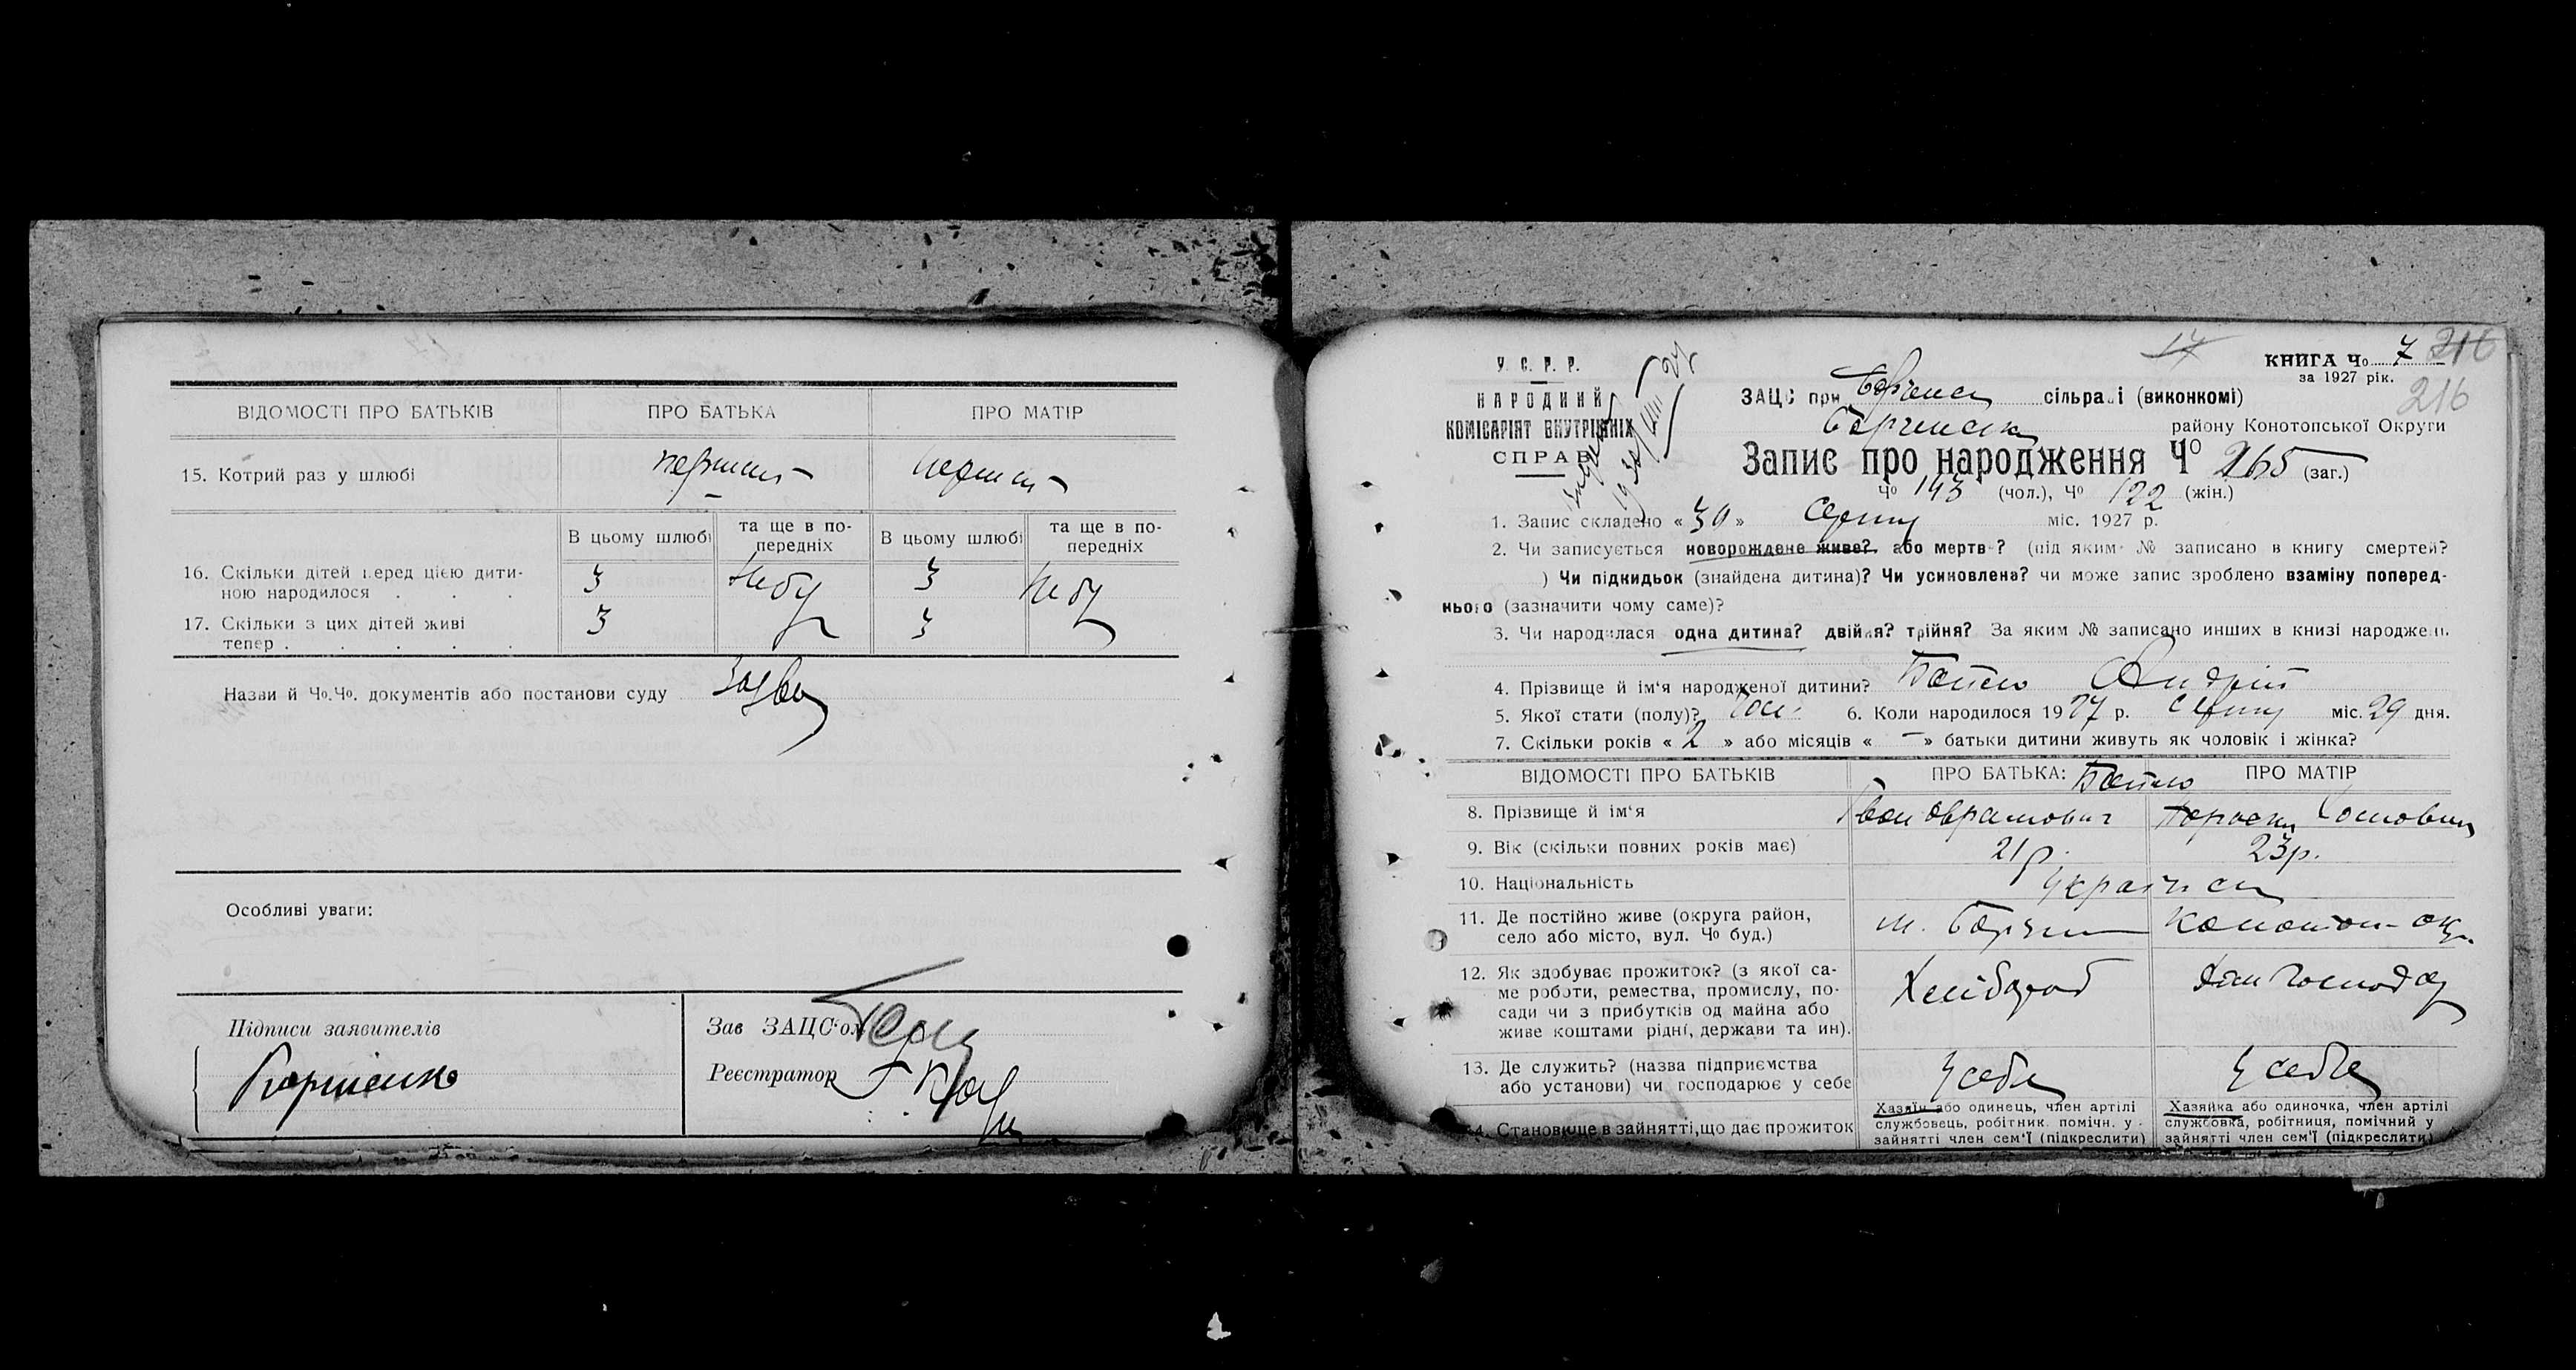 ВІДОМОСТІ ПРО БАТЬКІВ ПРО БАТЬКА ПРО МАТІР
15. Котрий раз у шлюбі
В цьому шлюбі та ще в по- В цьому шлюбі та ще в по-
передніх передніх
16. Скільки дітей перед цією дити- 3 Небу 3 Небу
ною народилося . . .
17. Скільки з цих дітей живі 3 3
тепер . . . . .
Назви й Чо.Чо. документів або постанови суду
Особливі уваги:
Підписи заявителів
Зав ЗАЦС'ом
Реєстратор
У. С. Р. Р.
НАРОДНИЙ
КОМІСАРІЯТ ВНУТРІШНІХ
СПРАВ
17
КНИГА Чо 7 216
за 1927 рік.
216
ЗАЦС при сільраді (виконкомі)
району Конотопської Округи
Запис про народження Чо 265 (заг.)
Чо 143 (чол.), Чо 122 (жін.)
1. Запис складено « 30 » Серпня міс. 1927 р.
2. Чи записується новорождене живе? або мертве? (під яким № записано в книгу смертей?
) Чи підкидьок (знайдена дитина)? Чи усиновлена? чи може запис зроблено взаміну поперед-
нього (зазначити чому саме)?
3. Чи народилася одна дитина? двійня? трійня? За яким № записано инших в книзі народжен.
4. Прізвище й ім'я народженої дитини? Андрій
5. Якої стати (полу)? Чол. 6. Коли народилося 1927 р. Серпня міс. 29 дня.
7. Скільки років « 2 » або місяців « — » батьки дитини живуть як чоловік і жінка?
ВІДОМОСТІ ПРО БАТЬКІВ ПРО БАТЬКА: ПРО МАТІР
8. Прізвище й ім'я Іван Оврамович
9. Вік (скільки повних років має) 21 р. 23 р.
10. Національність
11. Де постійно живе (округа район,
село або місто, вул. Чо буд.)
м. Борзна Конотоп. окр.
12. Як здобуває прожиток? (з якої са-
ме роботи, ремества, промислу, по-
сади чи з прибутків од майна або
живе коштами рідні, держави та ин).
Хлібороб
13. Де служить? (назва підприємства
або установи) чи господарює у себе
У себе У себе
14. Становище в зайнятті, що дає прожиток
Хазяїн або одинець, член артілі
службовець, робітник. помічн. у
зайнятті член сем'ї (підкреслити)
Хазяйка або одиночка, член артілі
службовка, робітниця, помічний у
зайнятті член сем'ї (підкреслити)